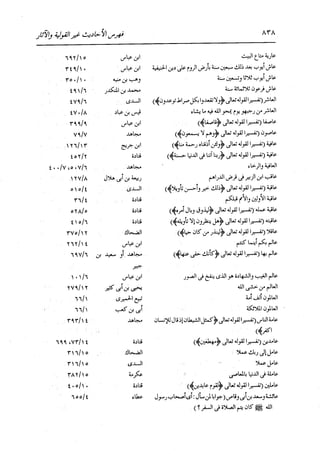 ٨٣٨ فهرس الأحاديث غير القولية والآثار
عارية متاع البيت ابن عباس ٦٩٢/١٥
عاش أيوب بعد ذلك سبعين سنة بأرض الروم على دين الحنيفية ابن عباس ٣٤٩/١٠
عاش أيوب ثلاثا وتسعين سنة وهب بن منبه ٣٥٠/١٠
عاش فرعون ثلاثمائة سنة محمد بن المنكدر ٤٩١/٦
العاشر (تفسيرا لقوله تعالى ﴿ولا تقعدوا بكل صراط توعدون﴾) السدى ٤٧٩/٦
العاشر من رجبهو يوم يمحو الله فيه ما يشاء قيس بن عباد ٤٧٠/٨
عاصفا (تفسيرا لقوله تعالى ﴿قاصفا﴾) ابن عباس ٣٩٩/٩
عاصون (تفسيرا لقوله تعالى ﴿وهم لا يسمعون﴾) مجاهد ٧٩/٧
عافية (تفسيرا لقوله تعالى ﴿ولئن أذقناه رحمة منا﴾) ابن جريج ١٢٦/١٣
عافية (تفسيرا لقوله تعالى ﴿ربنا آتنا في الدنيا حسنة﴾) قتادة ٤٥٢/٢
العافية والرخاء مجاهد ٤٠٠/٧، ٤٠٦
عاقب ابن الزبير في قرض الدراهم ربيعة بن أبى هلال ١٢٧/٨
عاقبة (تفسيرا لقوله تعالى ﴿ذلك خير وأحسن تأويلا﴾) السدى ٥١٥/٤
عاقبة الأولين والأمم قبلكم قتادة ٣٦/٤
عاقبة عمله (تفسيرا لقوله تعالى ﴿ليذوق وبال أمره﴾) قتادة ٥٢٨/٥
عاقبته (تفسيرا لقوله تعالى ﴿هل ينظرون إلا تأويله﴾) قتادة ٤١٥/٦
عاقلا (تفسيرا لقوله تعالى ﴿لينذر من كان حيا﴾) الضحاك ٣٧٥/١٢
عالم بكم أينما كنتم ابن عباس ٢٦٢/١٤
عالم بها (تفسيرا لقوله تعالى ﴿كأنك حفى عنها﴾) مجاهد أو سعيد بن ٦٩٧/٦
جبير
عالم الغيب والشهادة هو الذى ينفخ فى الصور ابن عباس ١٠١/٦
العالم من خشى الله يحيى بن أبى كثير ٢٧٩/١٢
العالمون ألف أمة تبيع الحميرى ٦٦/١
العالمون الملائكة أبى بن كعب ٦٦/١
عامة الناس (تفسيرا لقوله تعالى ﴿كمثل الشيطان إذ قال للإنسان مجاهد ٣٩٣/١٤
اكفر﴾)
عامدين (تفسيرا لقوله تعالى ﴿مهطعين﴾) قتادة ٧٣/١٤، ٦٩٩
عامل إلى ربك عملا الضحاك ٣١٦/١٥
عامل له عملا السدى ٣١٦/١٥
عاملة فى الدنيا بالمعاصى عكرمة ٣٨٢/١٥
عاملين (تفسيرا لقوله تعالى ﴿لقوم عابدين﴾) قتادة ٤٠٥/١٠
عائشة وسعد بن أبى وقاص (جوابا لمن سأل: أى أصحاب رسول عطاء ٦٥٥/٤
الله ﷺ كان يتم الصلاة فى السفر؟)